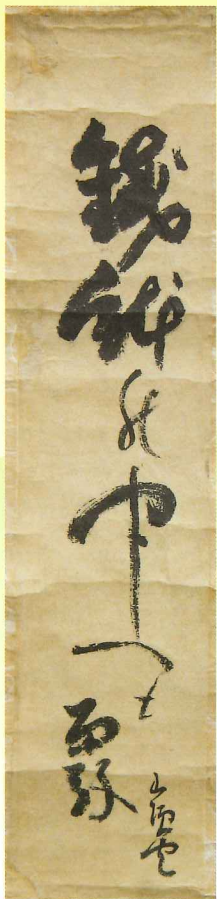 鐵鉢の中へも霰
山頭火